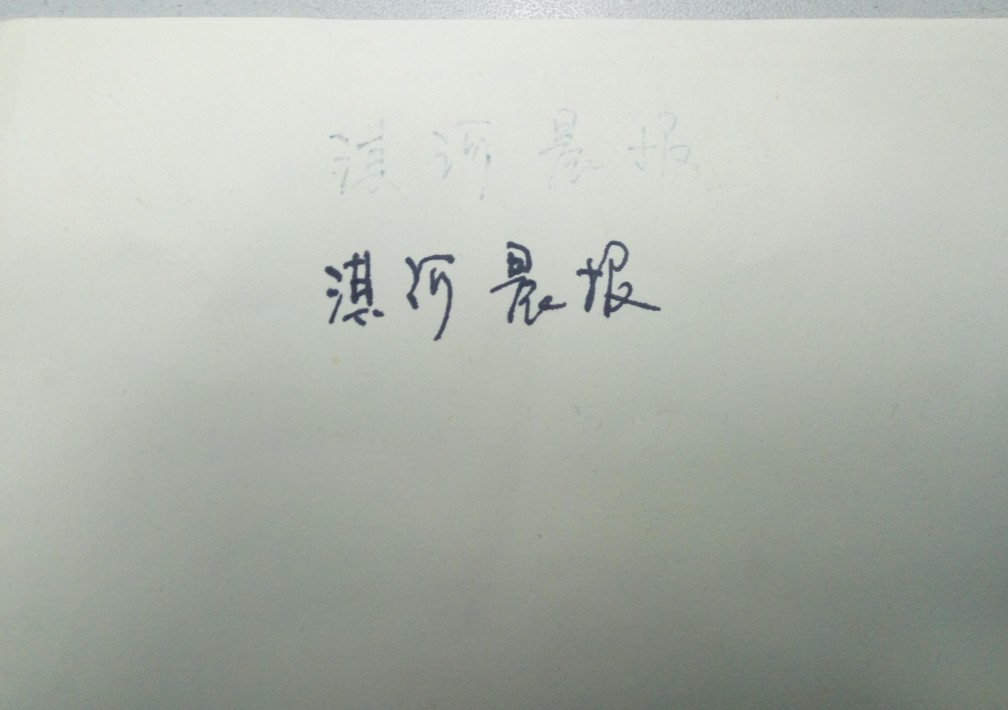 淇河晨报
淇河晨报